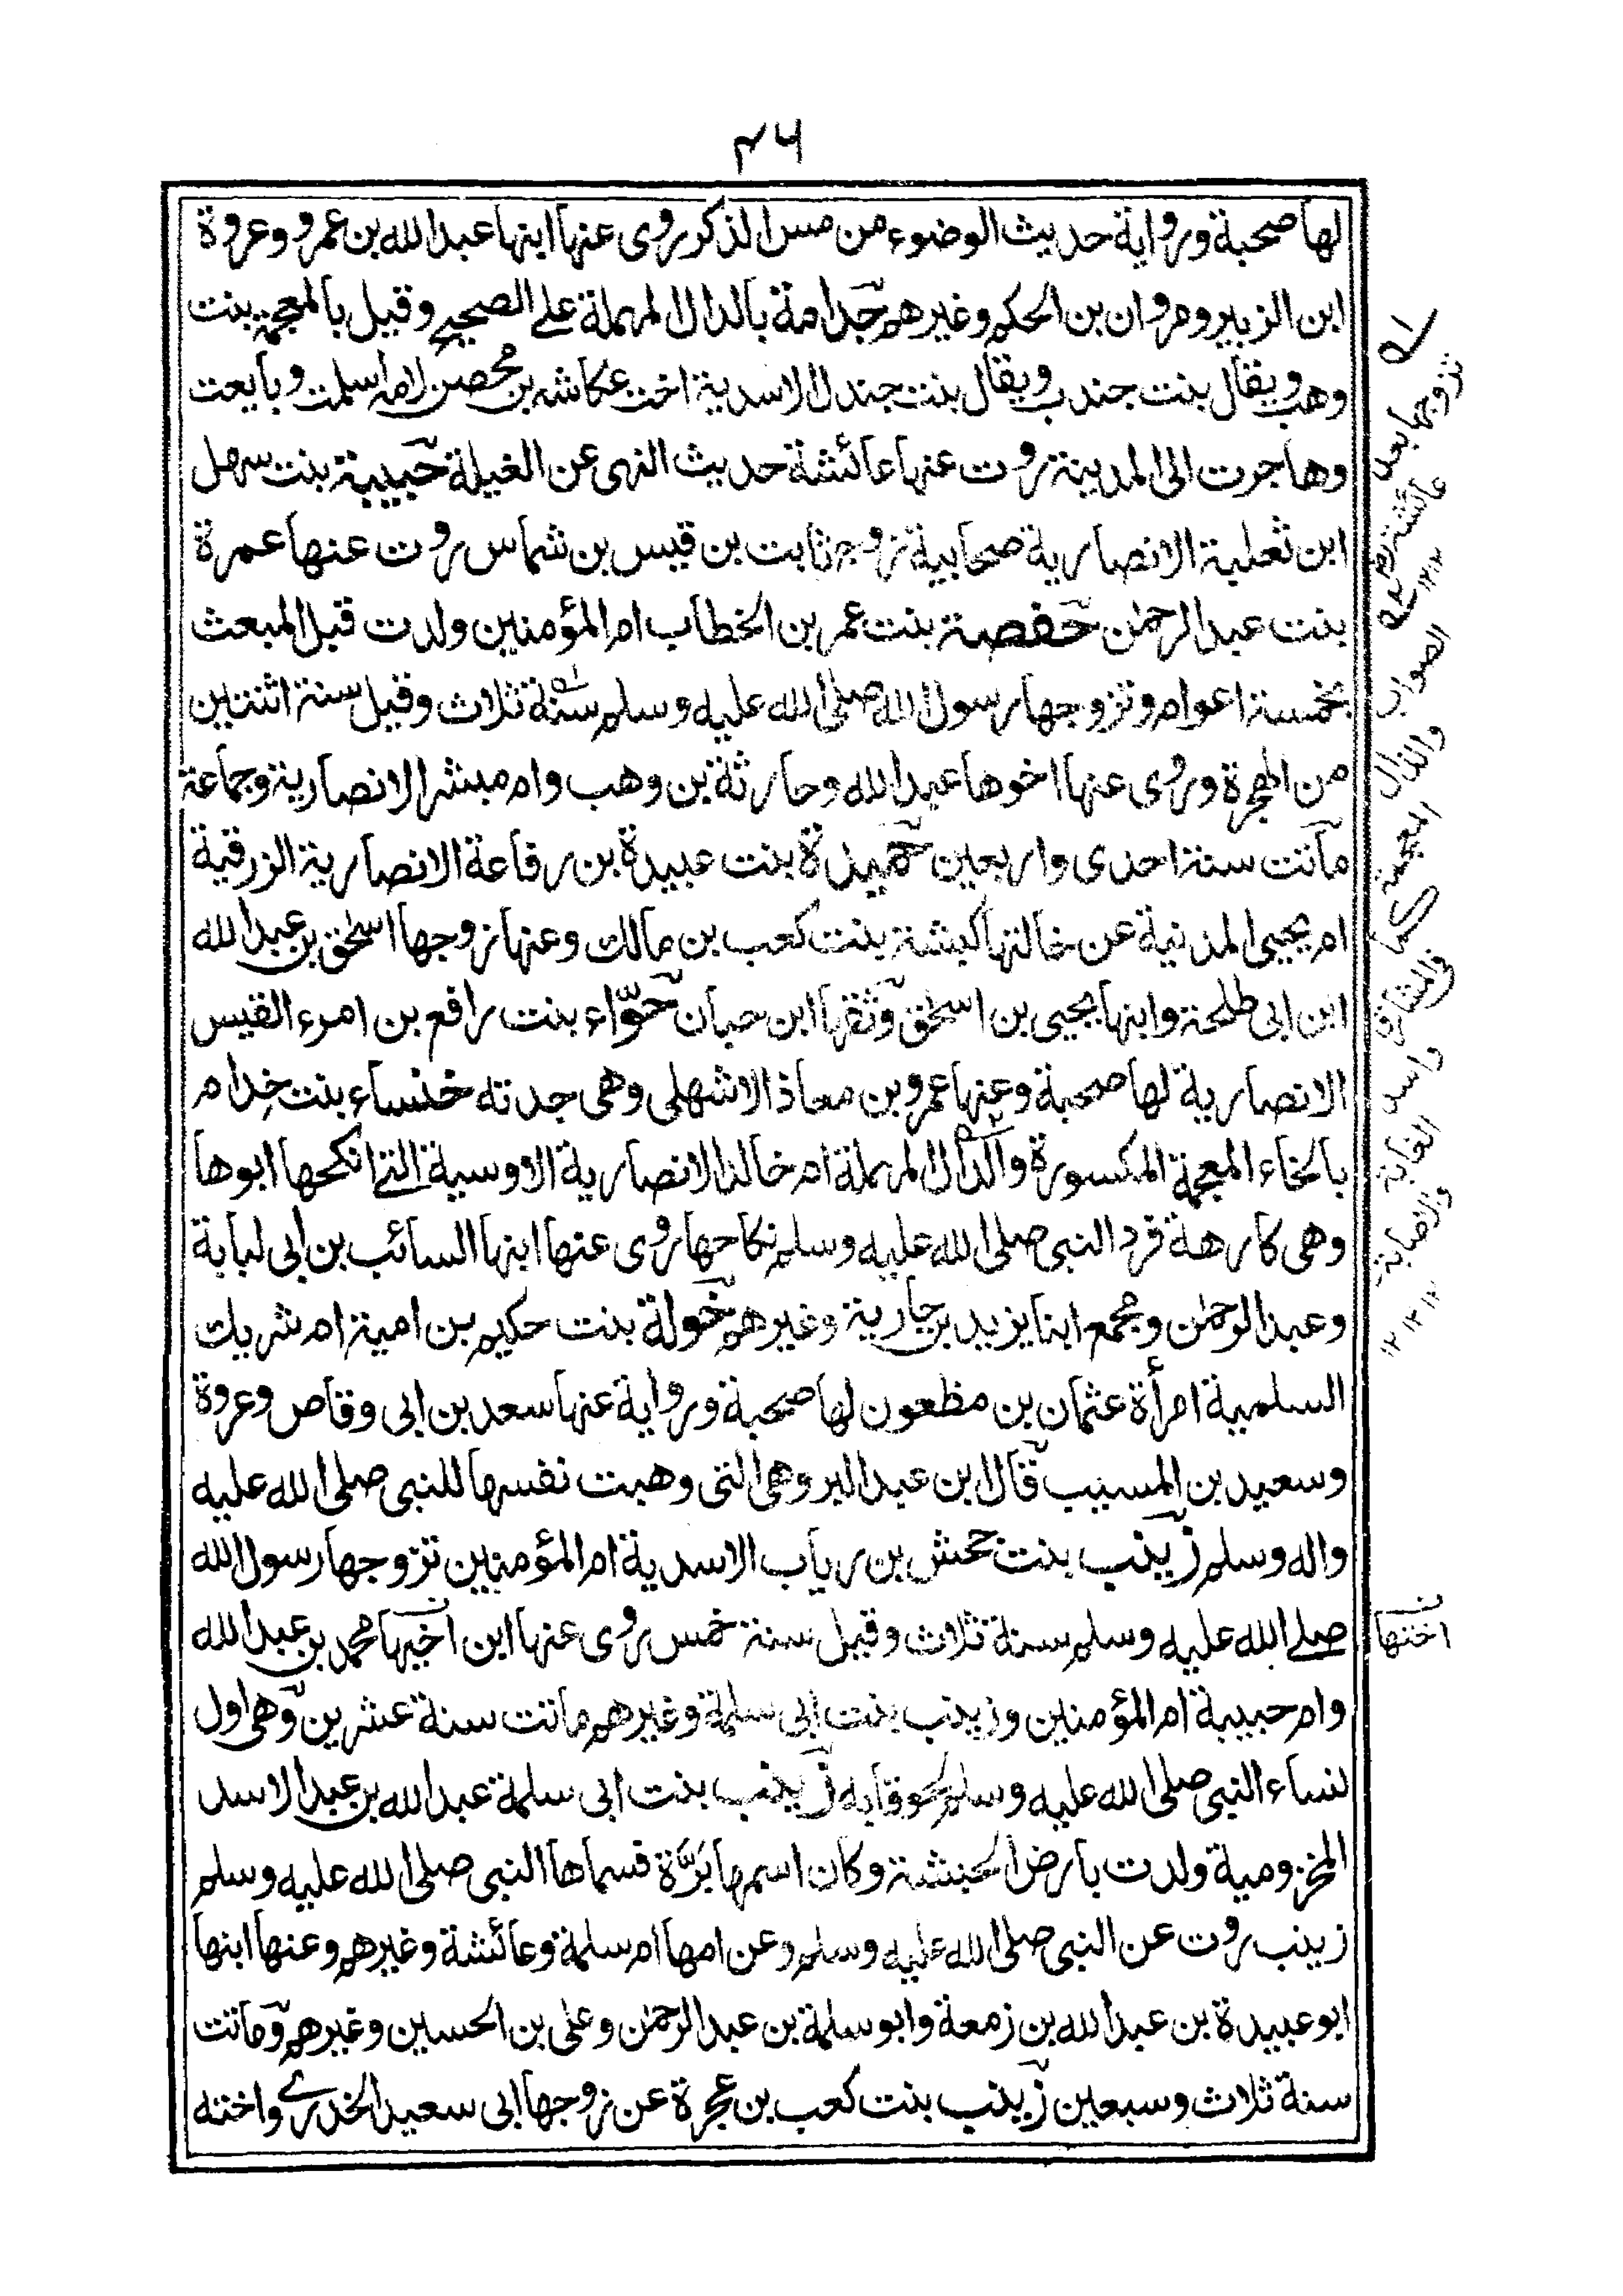 ۴۶
لها صحبة ورواية حديث الوضوء من مس الذكر روى عنها ابنها عبد الله بن عمرو وعروة
ابن الزبير ومروان بن الحكم وغيرهم جدامة بالدال المهملة على الصحيح وقيل بالمعجمة بنت
وهب ويقال بنت جندب ويقال بنت جندل الاسدية اخت عكاشه بن محصن لامه اسلمت وبايعت
وهاجرت الى المدينة روت عنها عائشة حديث النهى عن الغيلة حبيبة بنت سهل
ابن ثعلبة الانصارية صحابية تزوجه ثابت بن قيس بن شماس روت عنها عمرة
بنت عبد الرحمٰن حفصة بنت عمر بن الخطاب ام المؤمنين ولدت قبل المبعث
بخمسة اعوام وتزوجها رسول الله صلى الله عليه وسلم سنة ثلاث وقيل سنة اثنتين
من الهجرة وروى عنها اخوها عبد الله وحارثة بن وهب وام مبشر الانصارية وجماعة
ماتت سنة احدى واربعين حميدة بنت عبيدة بن رفاعة الانصارية الزرقية
ام يحيى المدنية عن خالتها كبشة بنت كعب بن مالك وعنها زوجها اسحٰق بن عبد الله
ابن ابى طلحة وابنها يحيى بن اسحٰق وثقها ابن حبان حوّاء بنت رافع بن امرء القيس
الانصارية لها صحبة وعنها عمرو بن معاذ الاشهلى وهى جدته خنساء بنت خِدام
بالخاء المعجمة المكسورة والدال المهملة ام خالد الانصارية الاوسية التے انكحها ابوها
وهى كارهة فرد النبى صلى الله عليه وسلم نكاحها روى عنها ابنها السائب بن ابى لبابة
وعبد الرحمٰن ومجمع ابنا يزيد بن جارية وغيرهم خولة بنت حكيم بن امية ام شريك
السلمية امرأة عثمان بن مظعون لها صحبة ورواية عنها سعد بن ابى وقاص وعروة
وسعيد بن المسيب قال ابن عبد البر وهى التى وهبت نفسها للنبى صلى الله عليه
واله وسلم زينب بنت جحش بن رياب الاسدية ام المؤمنين تزوجها رسول الله
صلے الله عليه وسلم سنة ثلاث وقيل سنة خمس روى عنها ابن اخيها محمد بن عبد الله
وام حبيبة ام المؤمنين وزينب بنت ابى سلمة وغيرهم ماتت سنة عشرين وهى اول
نساء النبى صلى الله عليه وسلم لحوقا به زينب بنت ابى سلمة عبد الله بن عبد الاسد
المخزومية ولدت بارض الحبشة وكان اسمها بَرَّة فسماها النبى صلى الله عليه وسلم
زينب روت عن النبى صلى الله عليه وسلم وعن امها ام سلمة وعائشة وغيرهم وعنها ابنها
ابو عبيدة بن عبد الله بن زمعة وابو سلمة بن عبد الرحمٰن وعلى بن الحسين وغيرهم وماتت
سنة ثلاث وسبعين زينب بنت كعب بن عجرة عن زوجها ابى سعيد الخدرے واخته
تزوجها بعد
عائشة
۱۲
الصواب
والذال
المعجمة
كما
واسد
الغابة
والاصابة
۱۲ ۱۲ ۱۲
ن
اختها